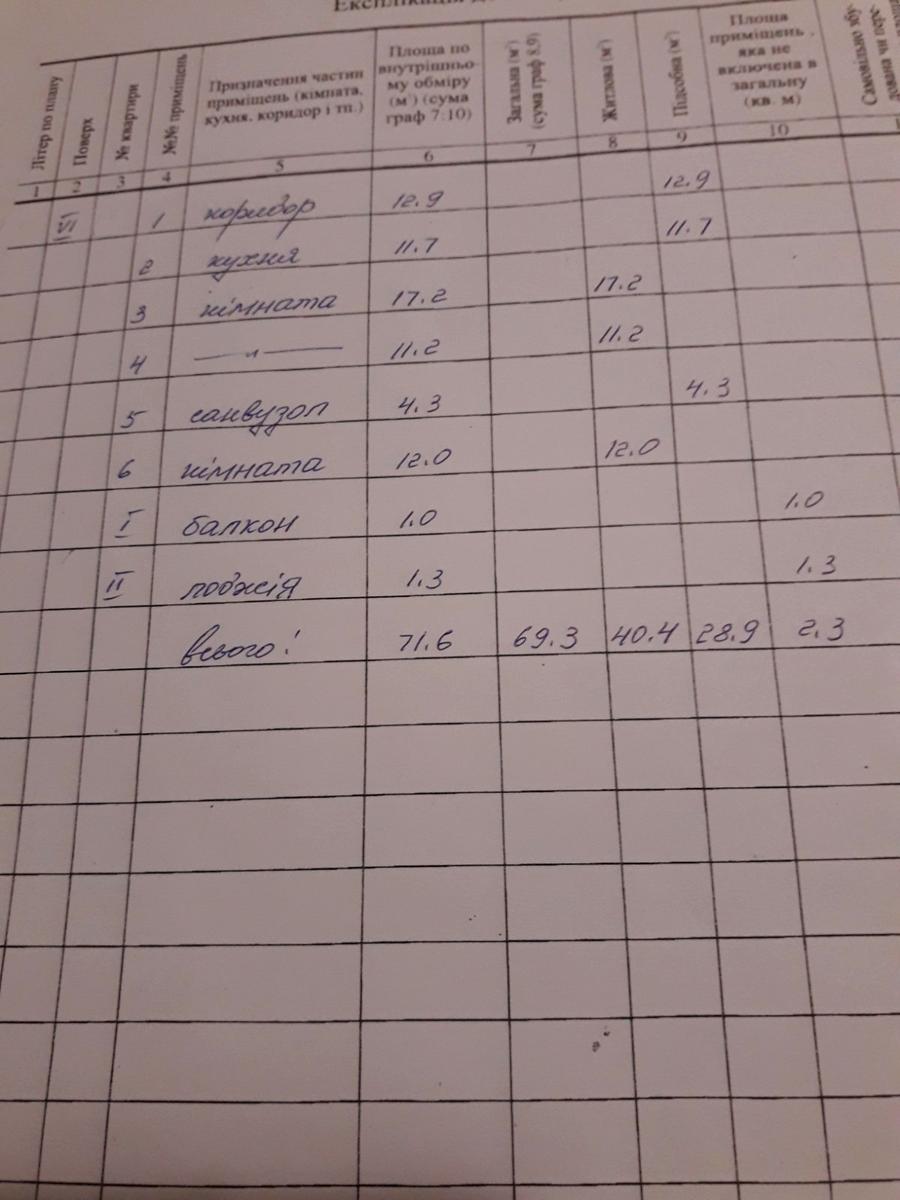 Літер по плану
Поверх
№ квартири
№№ приміщень
Призначення частин
приміщень (кімната,
кухня, коридор і тп.)
Площа по
внутрішньо-
му обміру
(м²) (сума
граф 7:10)
Загальна (м²)
(сума граф 8,9)
Житлова (м²)
Підсобна (м²)
Площа
приміщень,
яка не
включена в
загальну
(кв. м)
Самовільно збу-
дована чи пере-
1 2 3 4 5 6 7 8 9 10
VI 1 коридор 12.9 12.9
2 кухня 11.7 11.7
3 кімната 17.2 17.2
4 —〃— 11.2 11.2
5 санвузол 4.3 4.3
6 кімната 12.0 12.0
I балкон 1.0 1.0
II лоджія 1.3 1.3
всього: 71.6 69.3 40.4 28.9 2.3